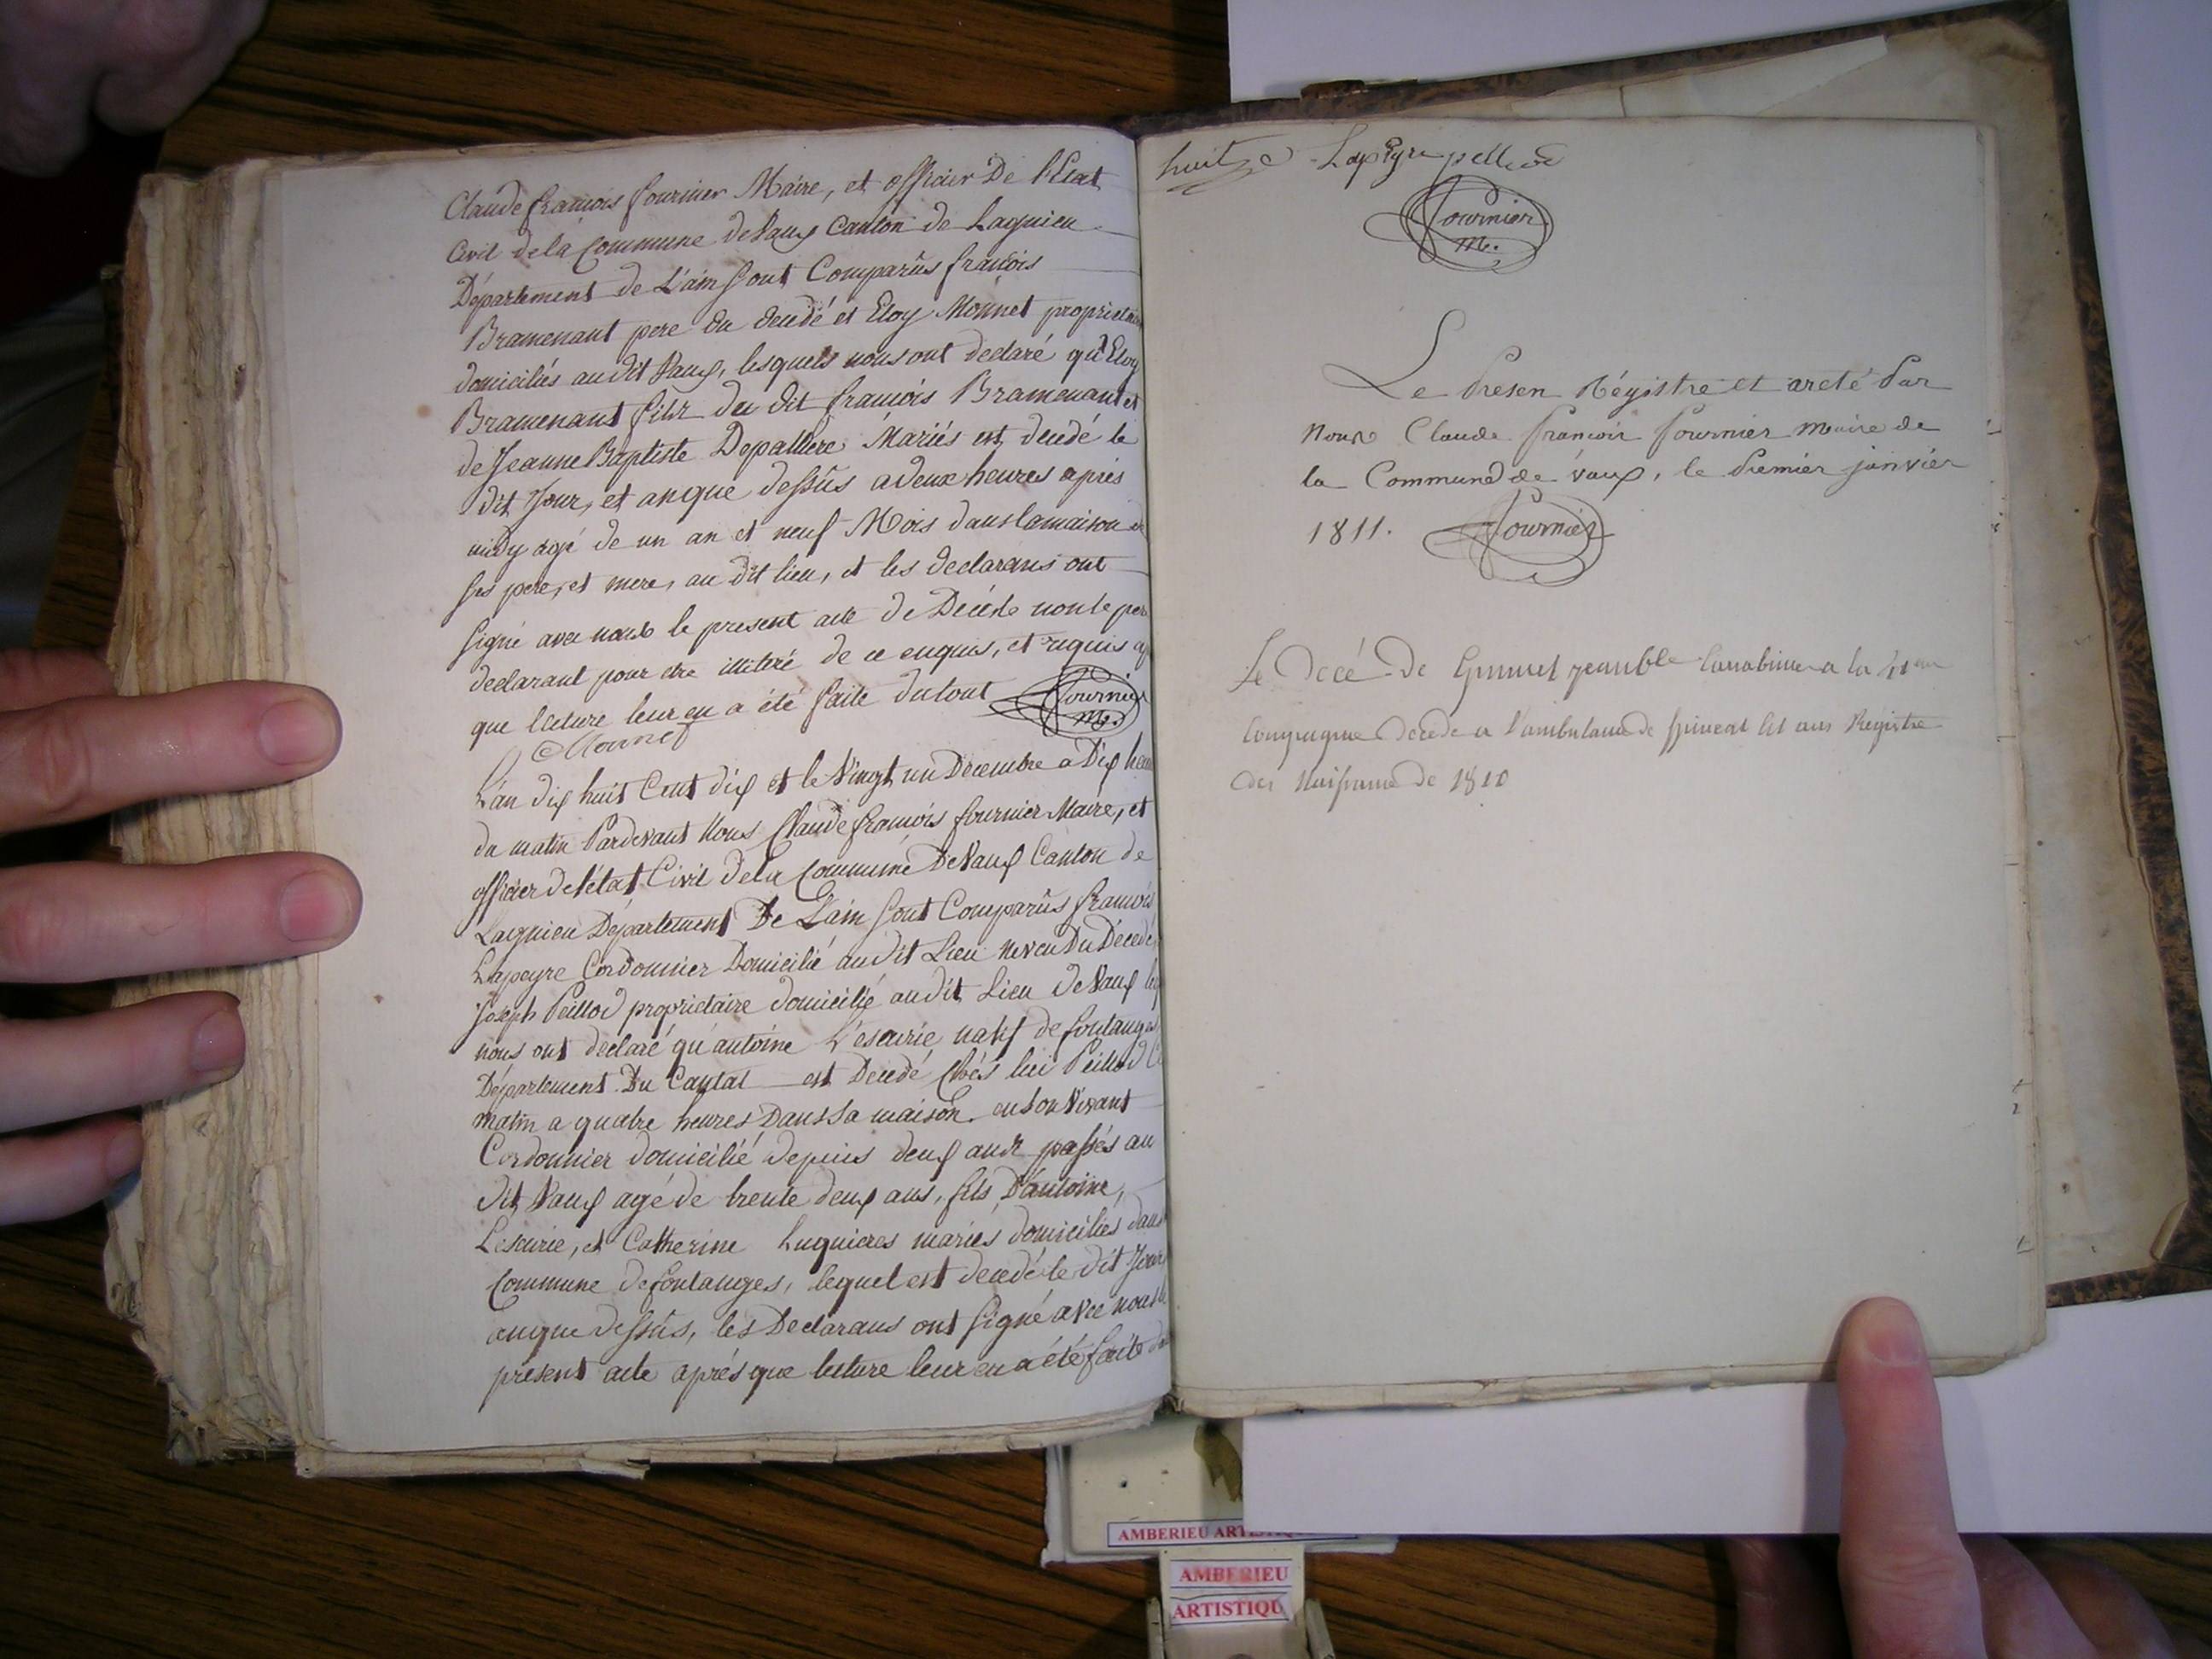 Claude françois fournier Maire, et officier De l'Etat
Civil dela Commune deVaux Canton de Lagnieu
Département de L'ain Sont Comparûs françois
Bramenant pere du decedé et Eloy Monnet proprietaire
domiciliés au dit Vaux, lesquels nous ont declaré qu'Eloy
Bramenant fils du dit françois Bramenant et
de Jeanne Baptiste Depallière Mariés est decedé le
dit Jour, et an que dessûs a deux heures après
midy agé de un an et neuf Mois dans la maison de
ses pere, et mere, au dit lieu, et les declarans ont
signé avec nous le present acte de Décès non le pere
declarant pour etre illiteré de ce enquis, et requis ap
que lecture leur en a été faite du tout Fournier
m.
E Monnet
L'an dix huit Cent dix et le Vingt un Decembre a Dix heu
du matin Pardevant Nous Claude françois fournier Maire, et
officier de l'état Civil dela Commune DeVaux Canton de
Lagnieu Département De L'ain Sont Comparûs françois
Lapeyre Cordonnier Domicilié au dit Lieu neveu Du Décedé
Joseph Peillod proprietaire domicilié au dit Lieu deVaux
nous ont declaré qu'antoine L'escurie natif de fontanges
Département Du Cantal est Decedé chés lui Peillod Ce
matin a quatre heures Dans Sa maison. en son Vivant
Cordonnier domicilié depuis deux ans passés au
dit Vaux agé de trente deux ans, fils D'antoine,
Lescurie, et Catherine Luguieres mariés domiciliés dans
Commune de fontanges, lequel est decedé le dit Jour
an que dessûs, les Declarans ont signé avec nous le
present acte après que lecture leur en a été faite du
huit Lapeyre pellod
Fournier
m.
Le Presen Régistre et areté Par
nous Claude françois fournier maire de
la Commune de vaux, le Premier janvier
1811. Fournier
Le Decé De
Compagnie decede a l'ambulance de est au Registre
des Naissance de 1810
AMBERIEU
AMBERIEU
ARTISTIQU